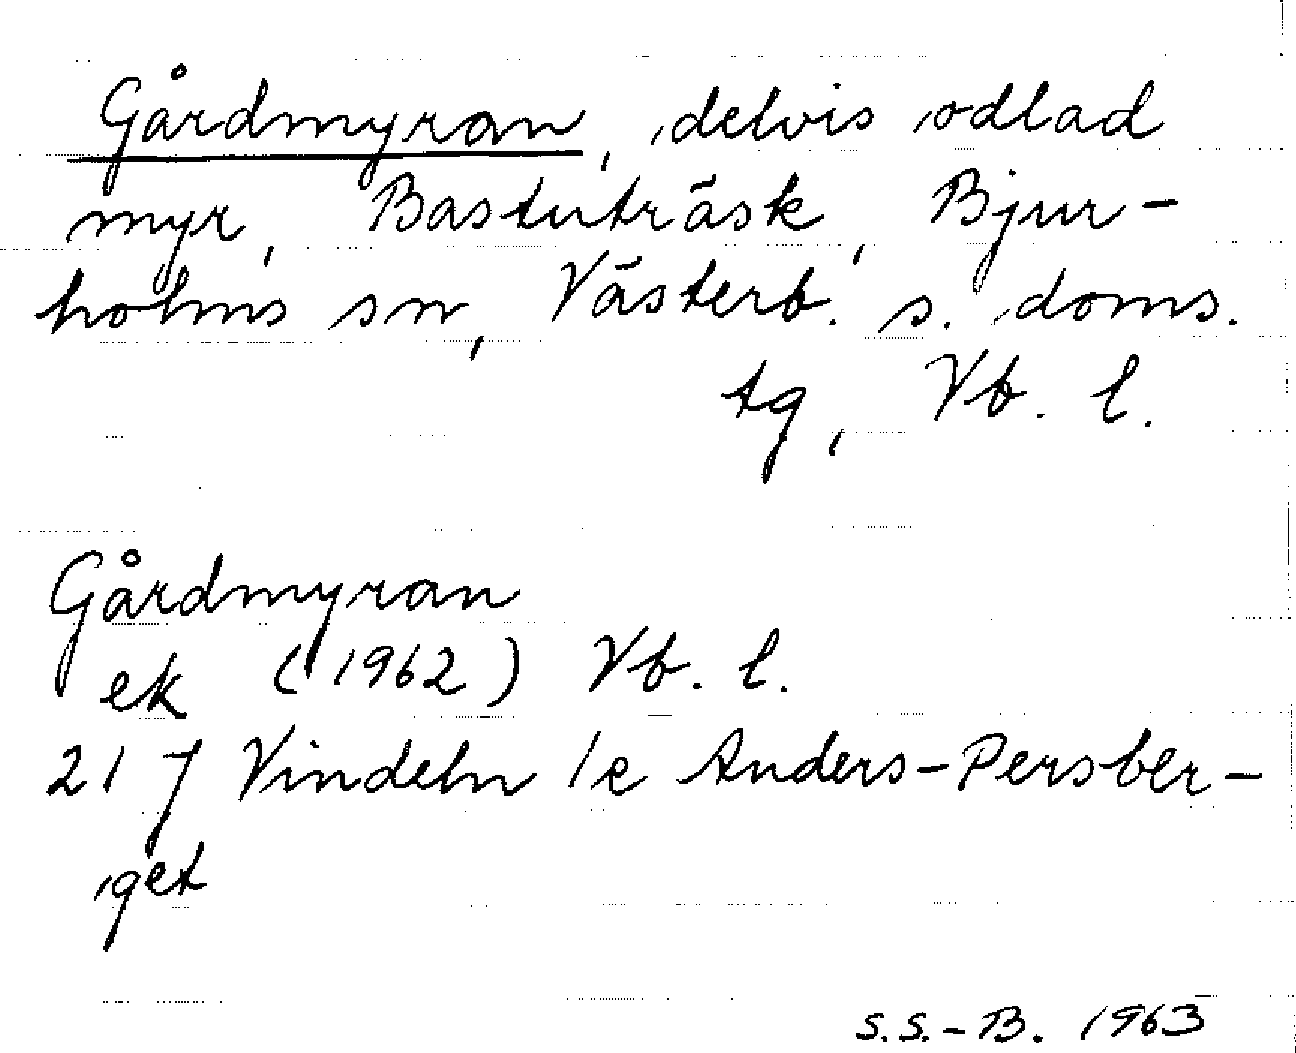 Gårdmyran, delvis odlad
myr, Bastuträsk, Bjur-
holms sn, Västerb. s. doms.
tg, Vb. l.
Gårdmyran
ek (1962) Vb. l.
21 J Vindeln 1c Anders-Persber-
get
S.S.-B. 1963